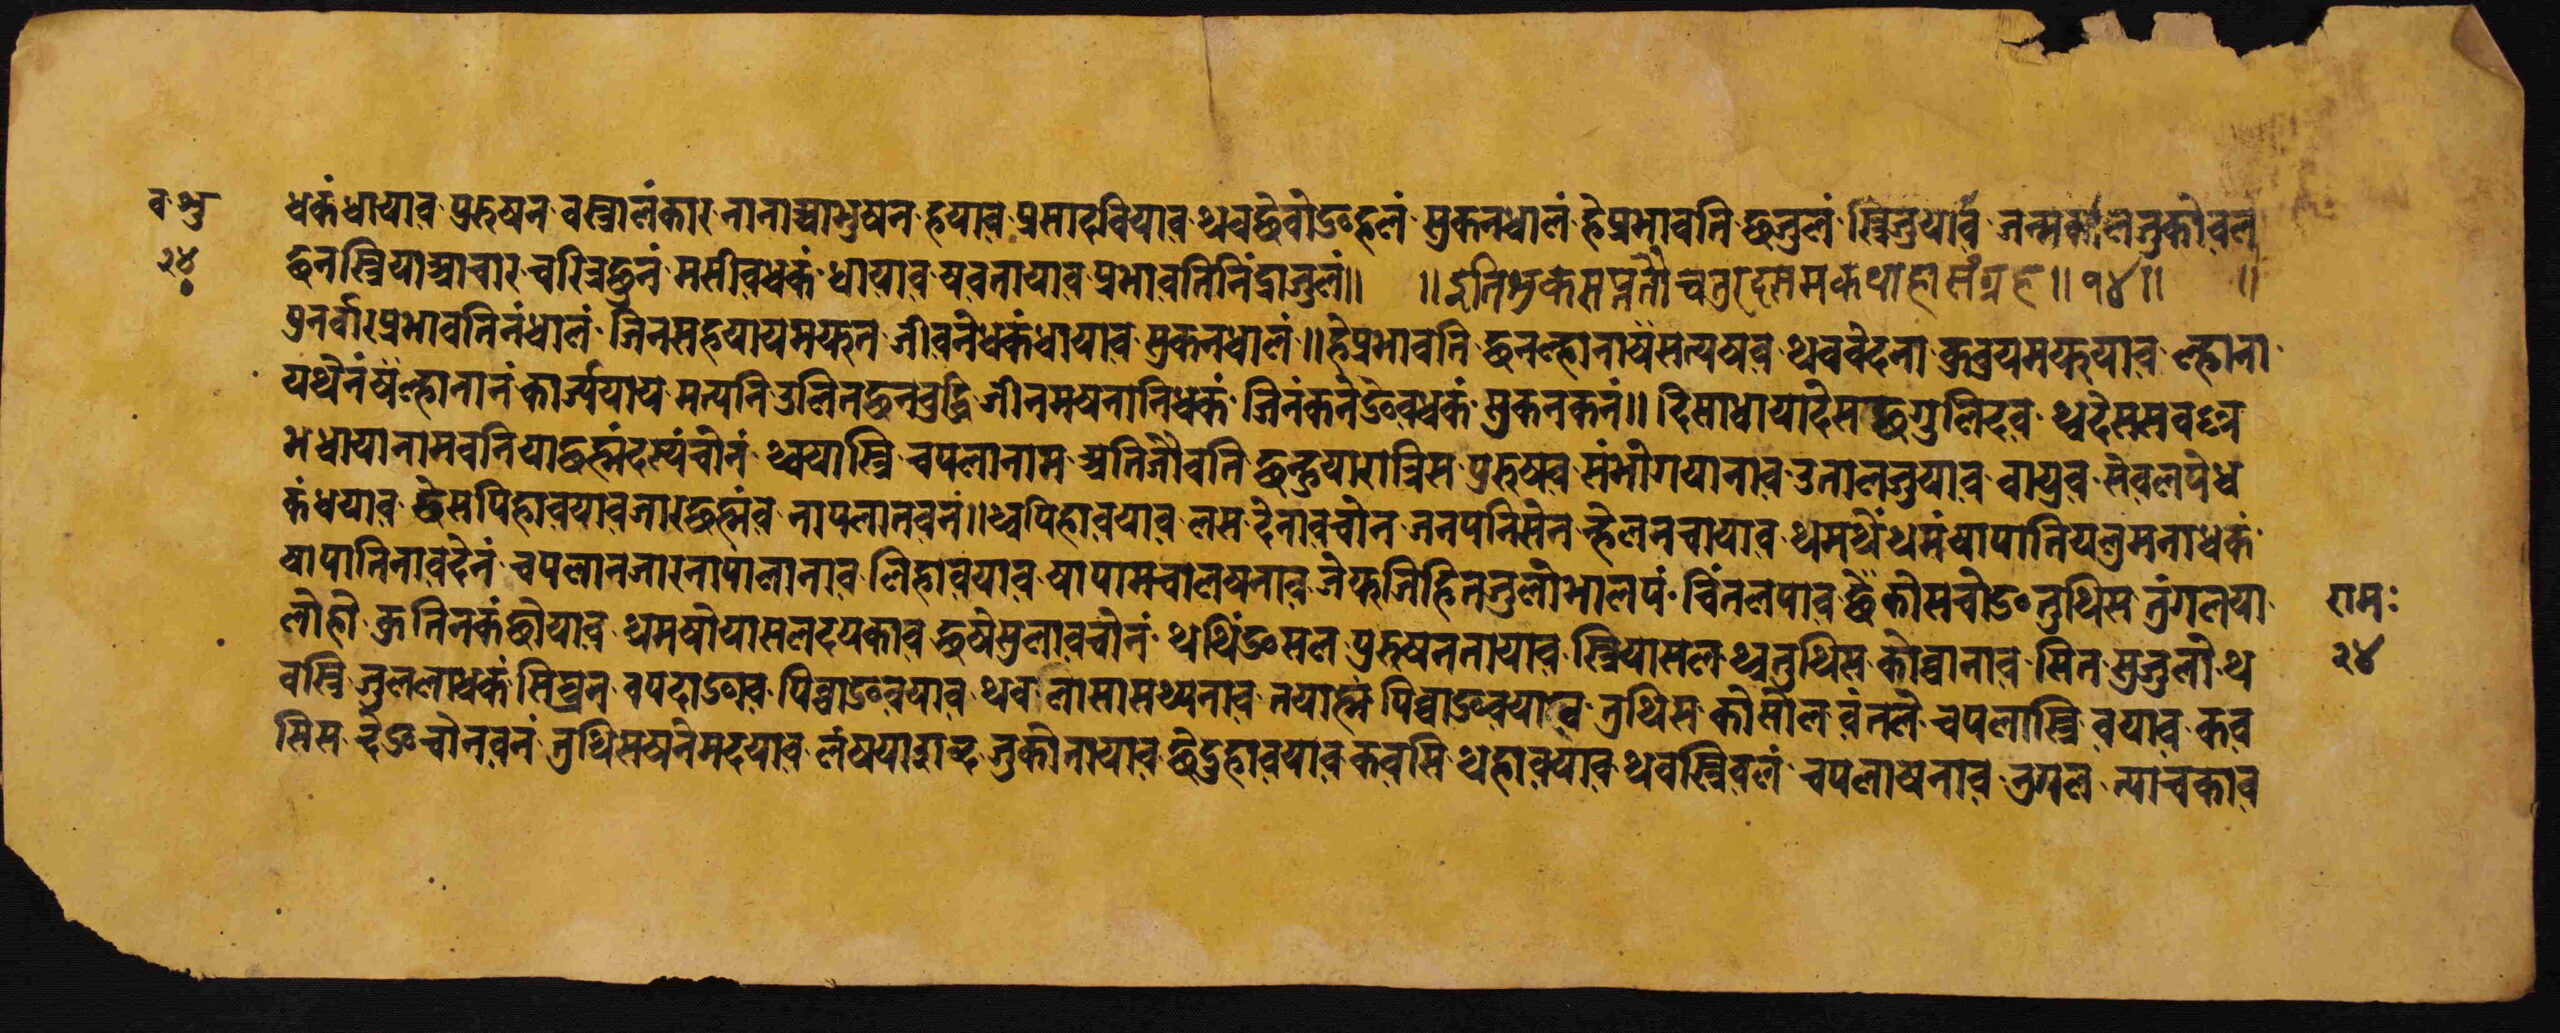 व शु
२४
धकंधायाव पुरुषन वस्त्रालंकार नानाआभुषन हयाव प्रसादवियाव थवछेवोङहलं सुकनधालं हेप्रभावति छजुलं स्त्रिजुयाव जन्मकालेजुकोवल
छनस्त्रियाआचार चरित्रछुनं मसीवधकं धायाव यवनायाव प्रभावतिनिंद्राजुलं॥ ॥इतिशुकसप्ततौ चतुरदसमकथाहासंग्रह॥१४॥ ॥
पुनर्वारप्रभावतिनंधालं जिनसहयायमफुत जीवनेधकंधायाव सुकनधालं॥हेप्रभावति छनल्हानायसत्यषव थववेदना क्वचुयमफुयाव ल्हाना
यथेनंषल्हानानं कार्ज्ययाय मत्यनि उलिनछनवुद्धि जीनमषनानिधकं जिनंकनेङेवधकं सुकनकनं॥ दिसाधायादेसछगुलिदव थ्वदेससवङ्गर
भधायानामवनियाछह्मंदस्यंचोनं थ्वयास्त्रि चपलानाम अतिजौवति छन्हुयारात्रिस पुरुषव संभोगयानाव उतालजुयाव वायुव सेवलपेध
कंधयाव छेसपिहावयावजारछह्मंव नापलातवनं॥थ्वपिहावयाव लस देनावचोन जनपनिसेन न्हेलनचायाव थमथेंथमं षापातियलुमनाधकं
षापातिनावदेनं चपलानजारनापालानाव लिहावयाव षापामचालषनाव जेफजिहितजुलोभालपं चिंतलपाव छेकोसचोङ तुथिस तुंगलया
लोहो क्रुतिनकंछोयाव थमषोयासलदयकाव छुषेसुलावचोनं थथिंङसल पुरुषनतायाव स्त्रियासल थ्वतुथिस कोव्वानाव सित सुजुलो थ
वस्त्रि जुललाधकं सिघ्रन वपदाङाव पिव्वाङवयाव थव लासासथ्यनाव नयाह्म पिव्वाङवयाव तुथिस कोसोल वंतले चपलास्त्रि वयाव कव
सिस देङचोनवनं तुथिसषनेमदयाव लंषयाशब्द जुकोतायाव छेदुहावयाव कवसि थहावयाव थवस्त्रिवलं चपलाषनाव नुगल त्याचकाव
रामः
२४